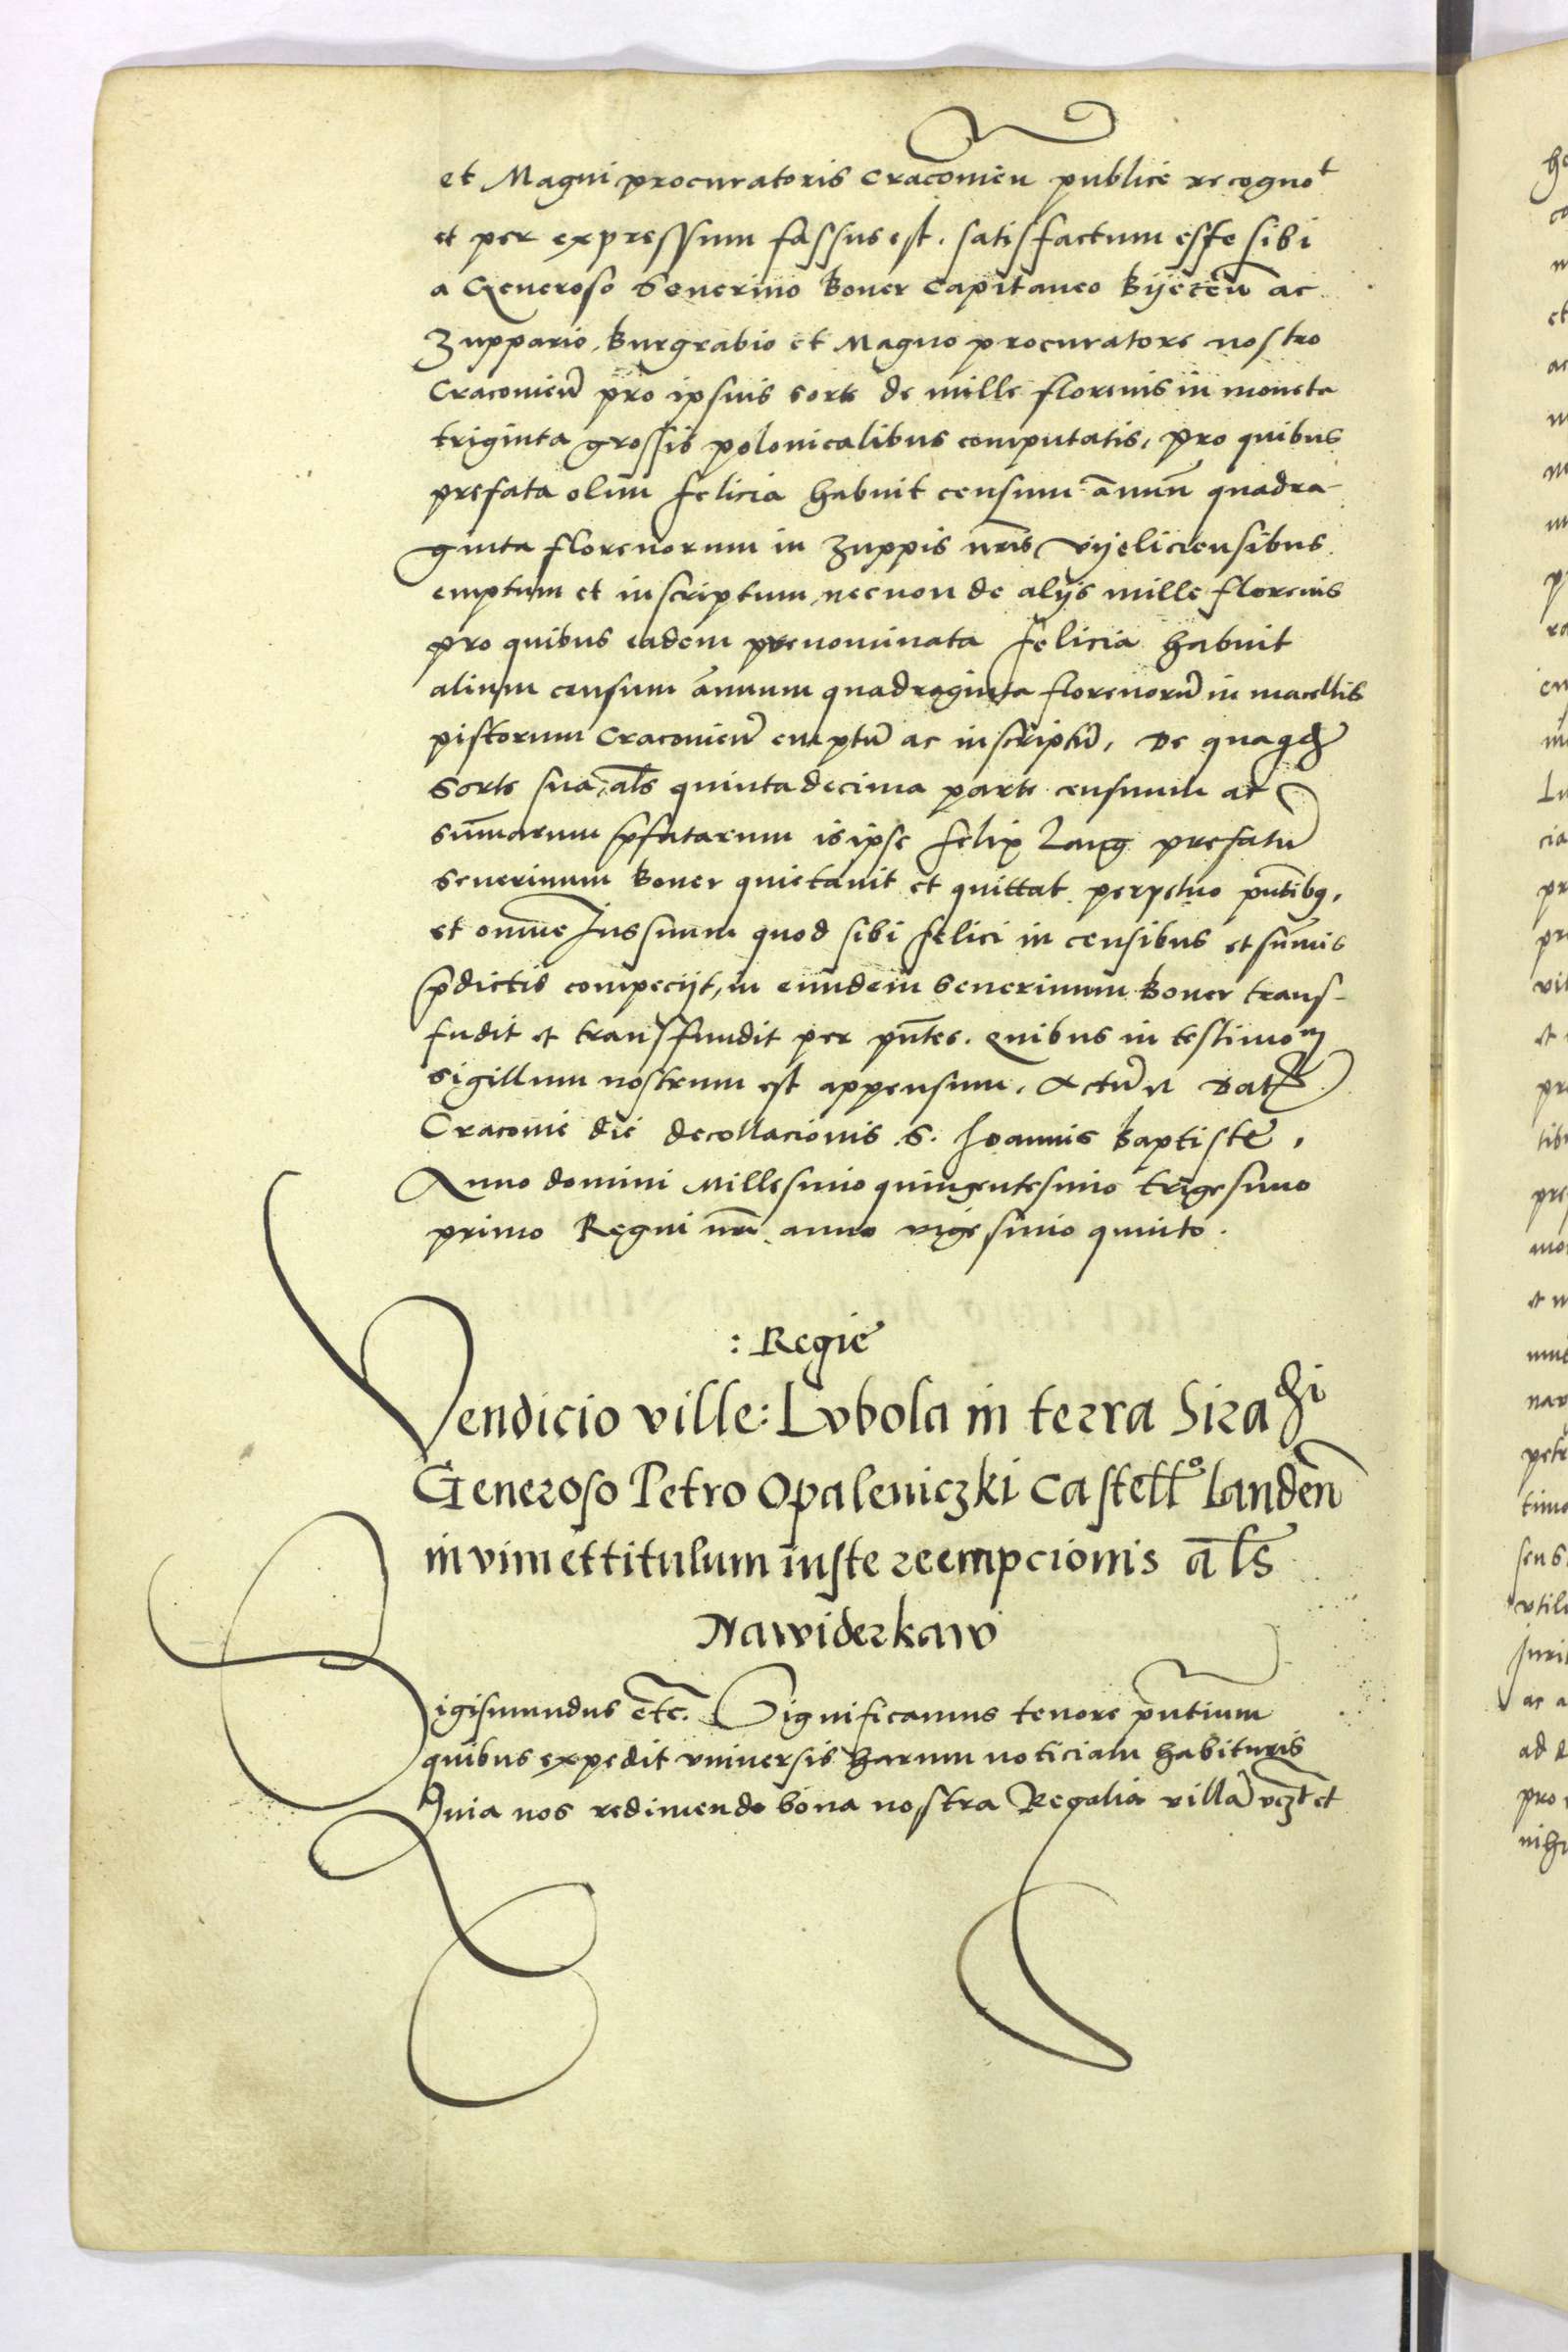 et Magni procuratoris Cracouień publice recogno^t
et per expressum fassus est. satisfactum esse sibi
a Generoso Seuerino Boner Capitaneo Byeceń ac
Zuppario, Burgrabio et Magno procuratore nostro
Cracouień pro ipsius sorte de mille florenis in moneta
triginta grossis polonicalibus computatis, pro quibus
prefata olim Felicia habuit censum ānuū quadra
ginta florenorum in Zuppis nr̄is Vyeliciensibus
emptum et inscriptum, necnon de alijs mille florenis
pro quibus eadem prenominata Felicia habuit
alium censum ānuum quadraginta florenorū in macellis
pistorum Cracouień emptū ac inscriptū, De quaqȝ
Sorte sua, al̄s quinta decima parte censuum ac
sum̄arum p̄fatarum is ipse Felix Lang prefatū
Seuerinum Boner quietauit et quittat perpetuo pn̄tibꝫ,
et omne Jus suum quod sibi Felici in censibus et sum̄is
p̄dictis competijt, in eundem Seuerinum Boner trans-
fudit et transfundit per pn̄tes. Quibus in testimo^m
Sigillum nostrum est appensum. Actū et Dat
Cracouie die decollacionis S. Joannis Baptiste,
Anno domini Millesimo quingentesimo trigesimo
primo Regni nr̄i anno vigesimo quinto.
: Regie
Vendicio ville: Lvbola in terra Sira
Generoso Petro Opaleniczki Castell^o Landeñ
in vim et titulum iuste reempcionis al̄s
Nawiderkaw
Sigismundus etc. Significamus tenore pn̄tium
quibus expedit vniversis harum noticiam habituris
Quia nos redimendo bona nostra Regalia villā vcꝫt et